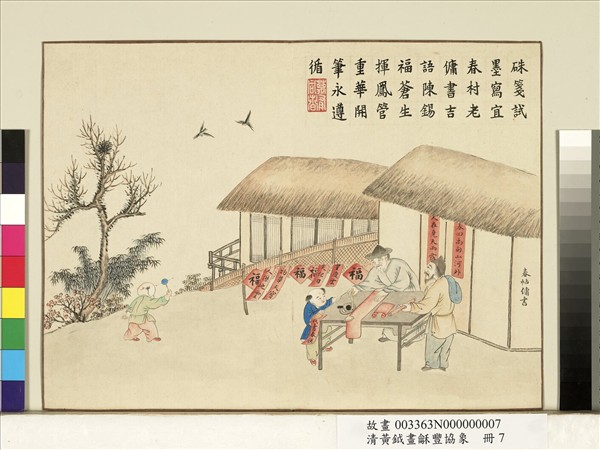 硃箋試
墨寫宜
春村老
傭書吉
語陳錫
福蒼生
揮鳳管
重華開
筆永遵
循
春帖傭書
福
福
福
福
故畫 003363N000000007
清黃鉞畫龢豐協象　冊 7